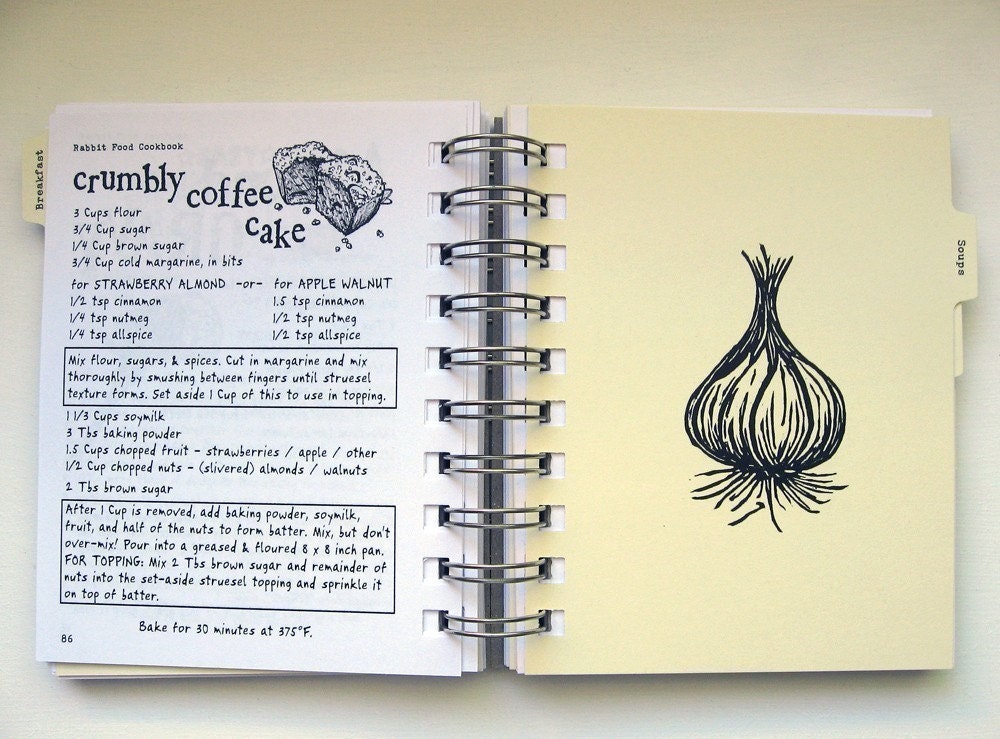 Breakfast
Rabbit Food Cookbook
crumbly coffee cake
3 Cups flour
3/4 Cup sugar
1/4 Cup brown sugar
3/4 Cup cold margarine, in bits
for STRAWBERRY ALMOND -or- for APPLE WALNUT
1/2 tsp cinnamon 1.5 tsp cinnamon
1/4 tsp nutmeg 1/2 tsp nutmeg
1/4 tsp allspice 1/2 tsp allspice
Mix flour, sugars, & spices. Cut in margarine and mix
thoroughly by smushing between fingers until struesel
texture forms. Set aside 1 Cup of this to use in topping.
1 1/3 Cups soymilk
3 Tbs baking powder
1.5 Cups chopped fruit - strawberries / apple / other
1/2 Cup chopped nuts - (slivered) almonds / walnuts
2 Tbs brown sugar
After 1 Cup is removed, add baking powder, soymilk,
fruit, and half of the nuts to form batter. Mix, but don't
over-mix! Pour into a greased & floured 8 x 8 inch pan.
FOR TOPPING: Mix 2 Tbs brown sugar and remainder of
nuts into the set-aside struesel topping and sprinkle it
on top of batter.
Bake for 30 minutes at 375°F.
86
Soups